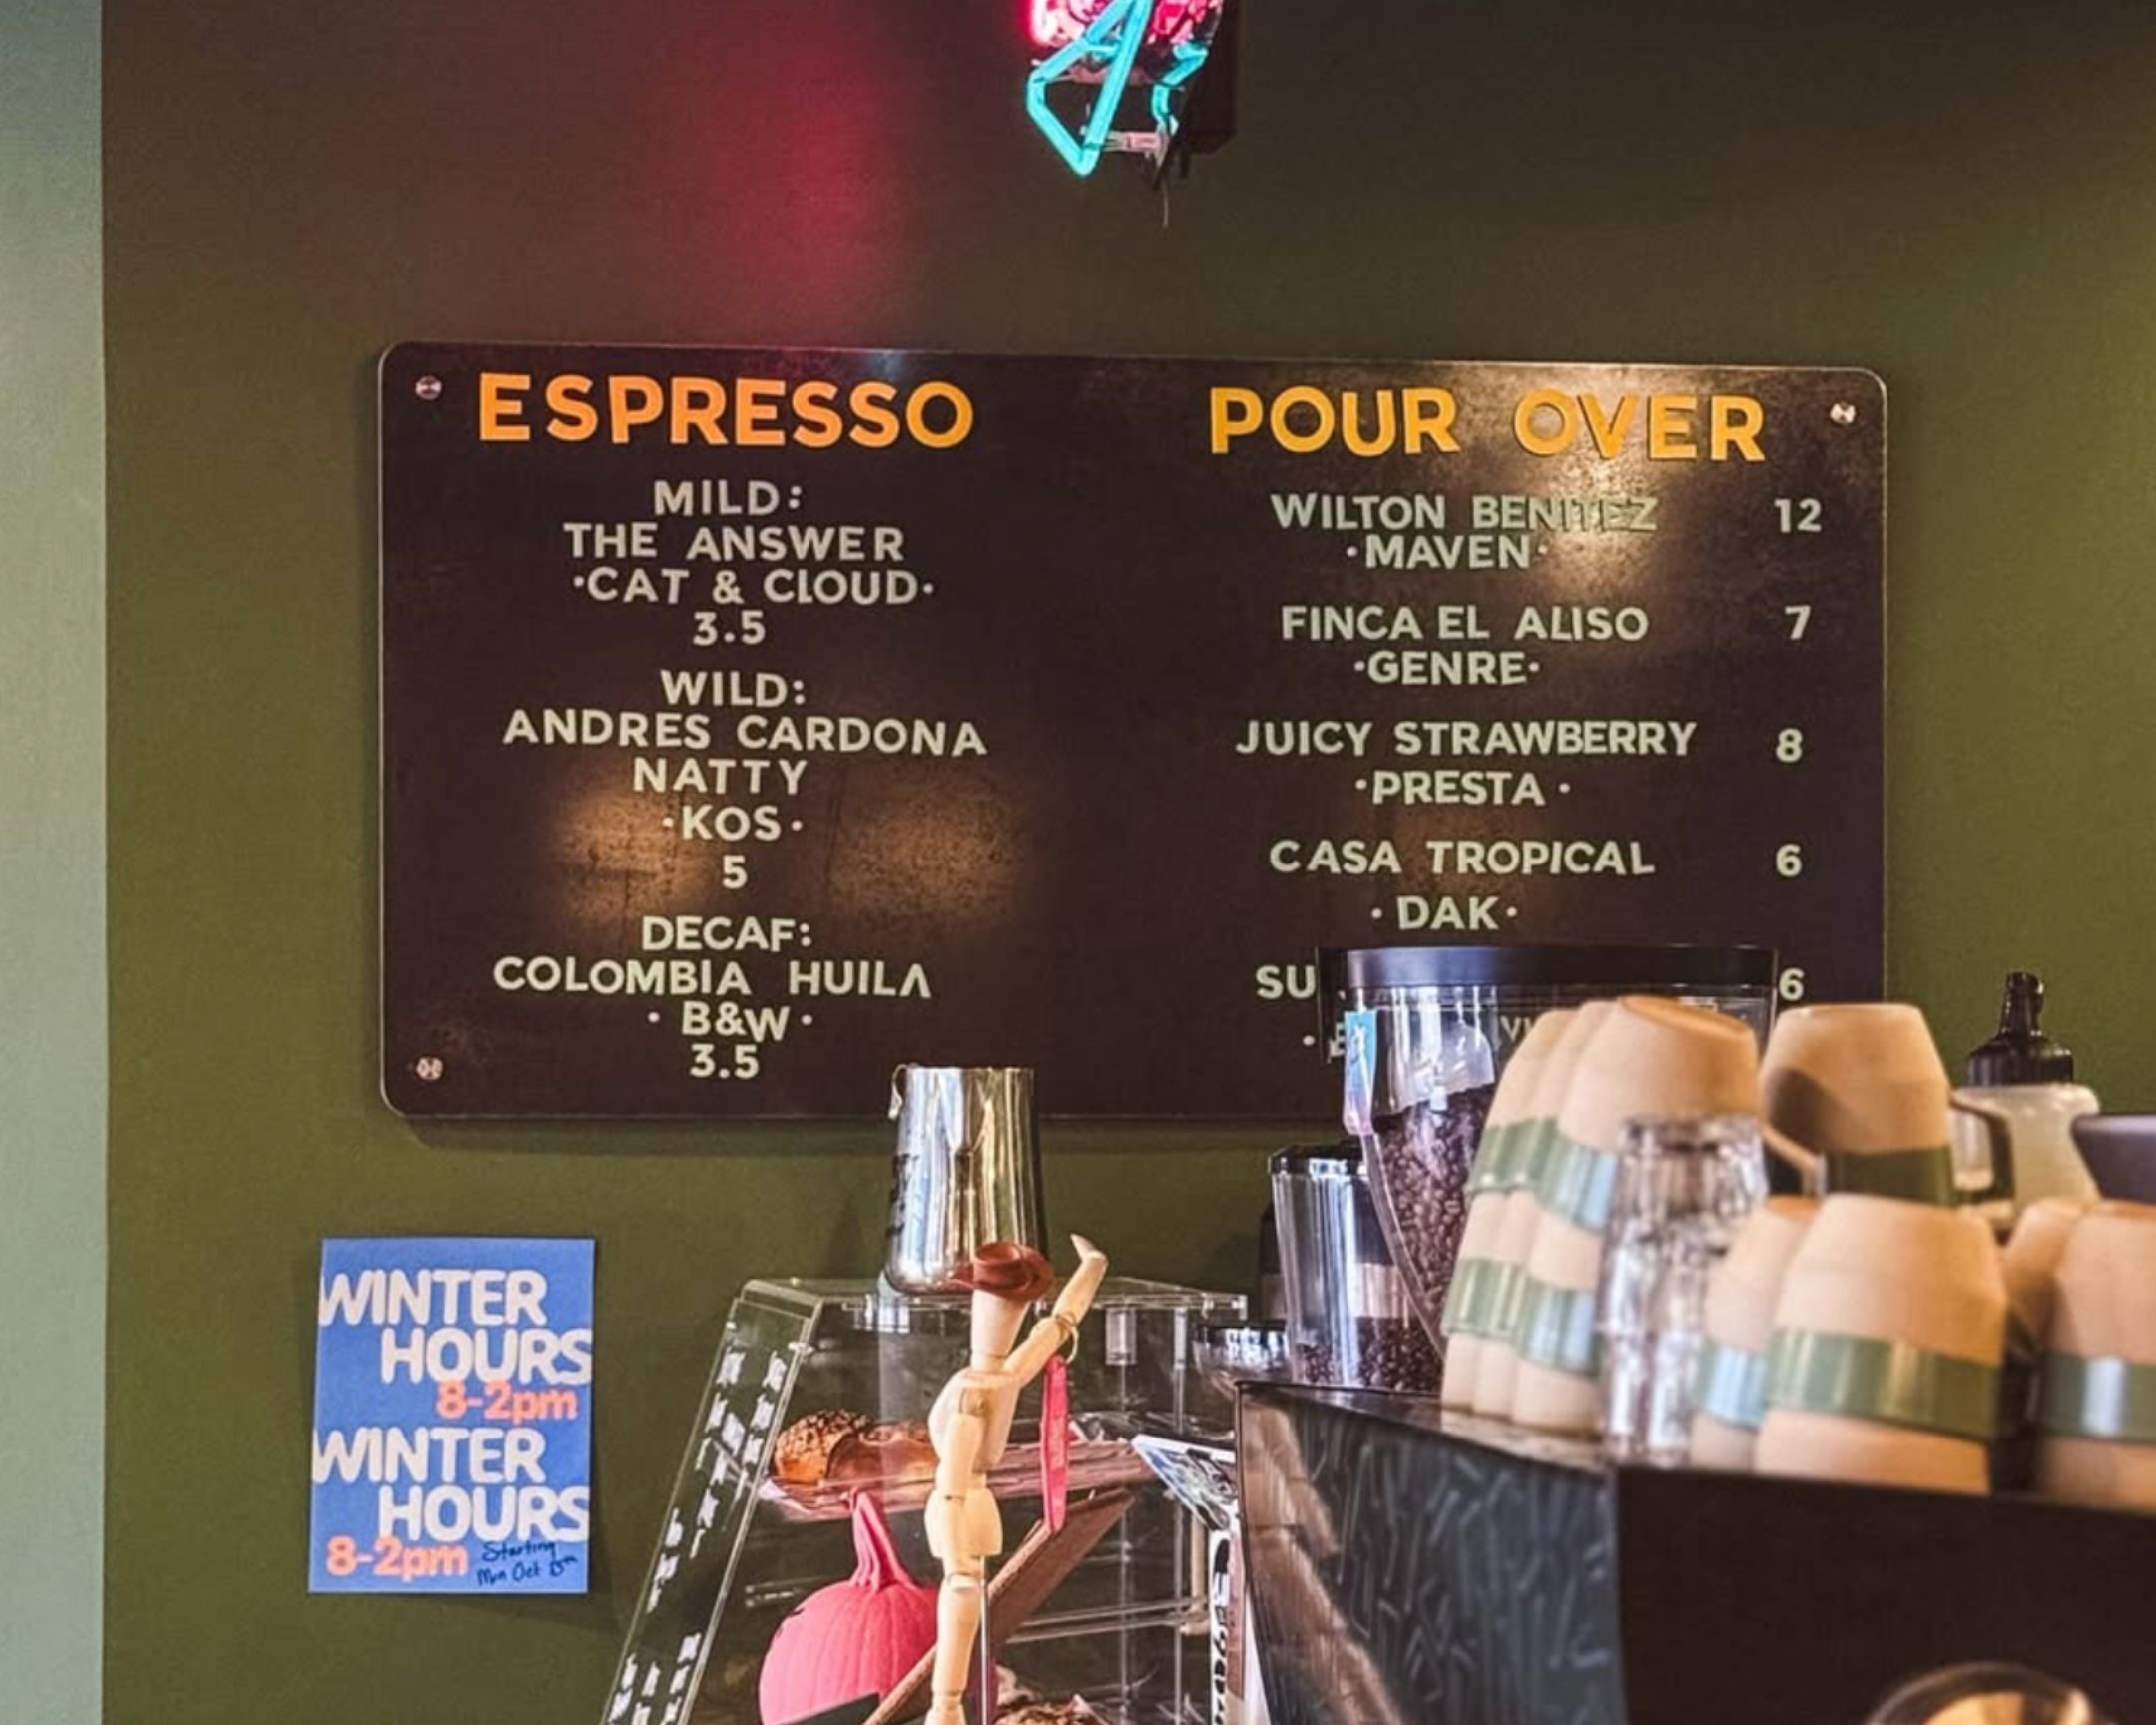 ESPRESSO
MILD:
THE ANSWER
·CAT & CLOUD·
3.5
WILD:
ANDRES CARDONA
NATTY
·KOS·
5
DECAF:
COLOMBIA HUILA
· B&W ·
3.5
POUR OVER
WILTON BENITEZ 12
·MAVEN·
FINCA EL ALISO 7
·GENRE·
JUICY STRAWBERRY 8
·PRESTA ·
CASA TROPICAL 6
· DAK·
6
WINTER
HOURS
8-2pm
WINTER
HOURS
8-2pm
Starting
Mon Oct